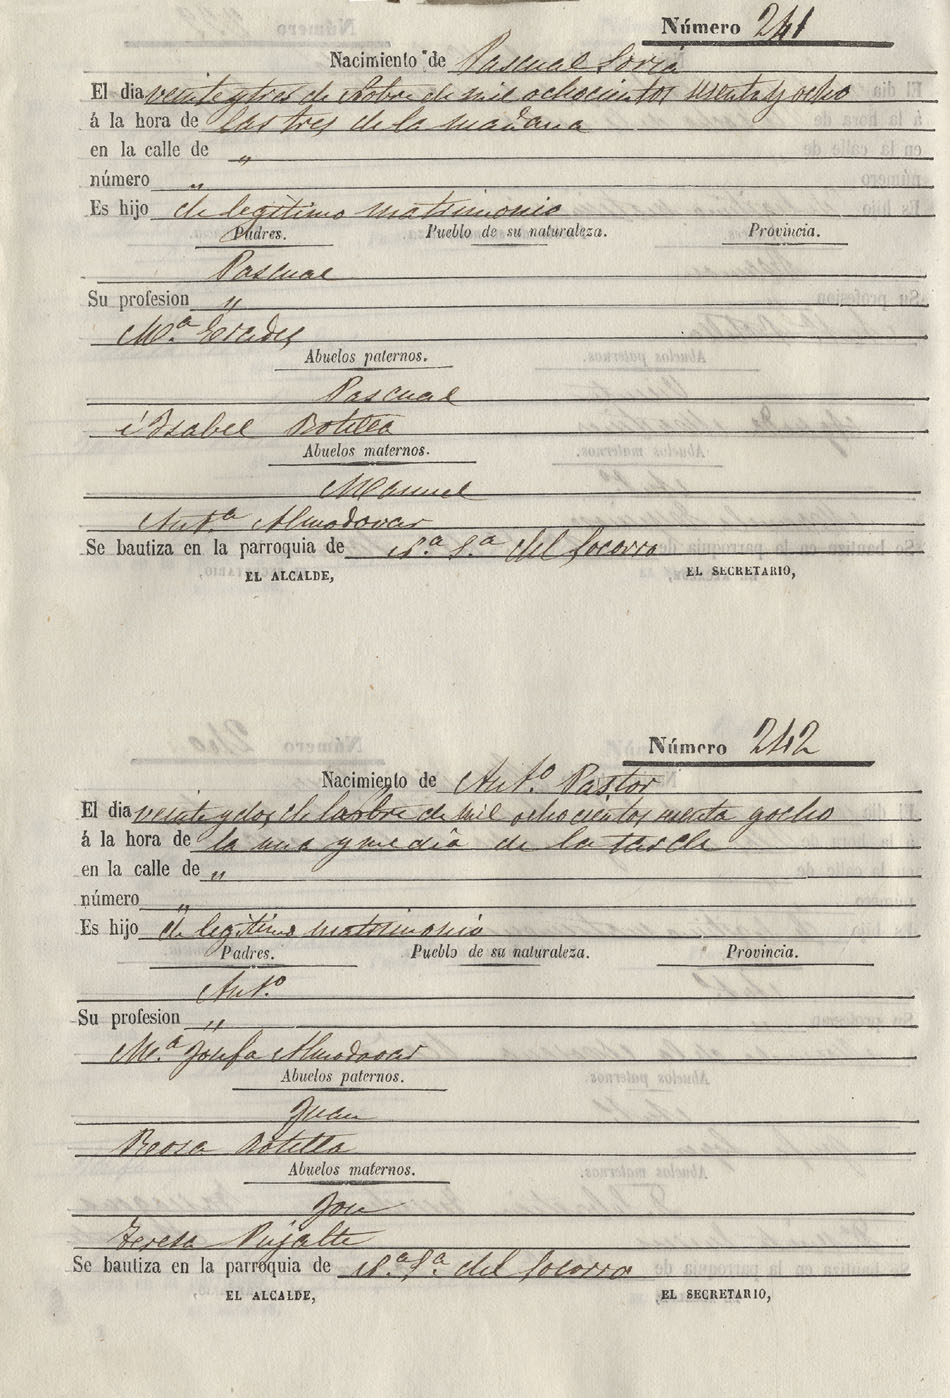 Número 241
Nacimiento de Pascual Soria
El dia veinte y tres de Octobre de mil ochocientos sesenta y ocho
á la hora de las tres de la mañana
en la calle de "
número "
Es hijo de legitimo matrimonio
Padres. Pueblo de su naturaleza. Provincia.
Pascual
Su profesion "
Mª Erades
Abuelos paternos.
Pascual
é Isabel Botella
Abuelos maternos.
Manuel
Antª Almodovar
Se bautiza en la parroquia de Nª Sª del Socorro
EL ALCALDE, EL SECRETARIO,
Número 242
Nacimiento de Antº Pastor
El dia veinte y dos de de mil ochocientos sesenta y ocho
á la hora de la una y media de la tarde
en la calle de "
número "
Es hijo de legitimo matrimonio
Padres. Pueblo de su naturaleza. Provincia.
Antº
Su profesion "
Mª Josefa Almodovar
Abuelos paternos.
Juan
Rosa Botella
Abuelos maternos.
José
Teresa Pujalte
Se bautiza en la parroquia de Nª Sª del Socorro
EL ALCALDE, EL SECRETARIO,